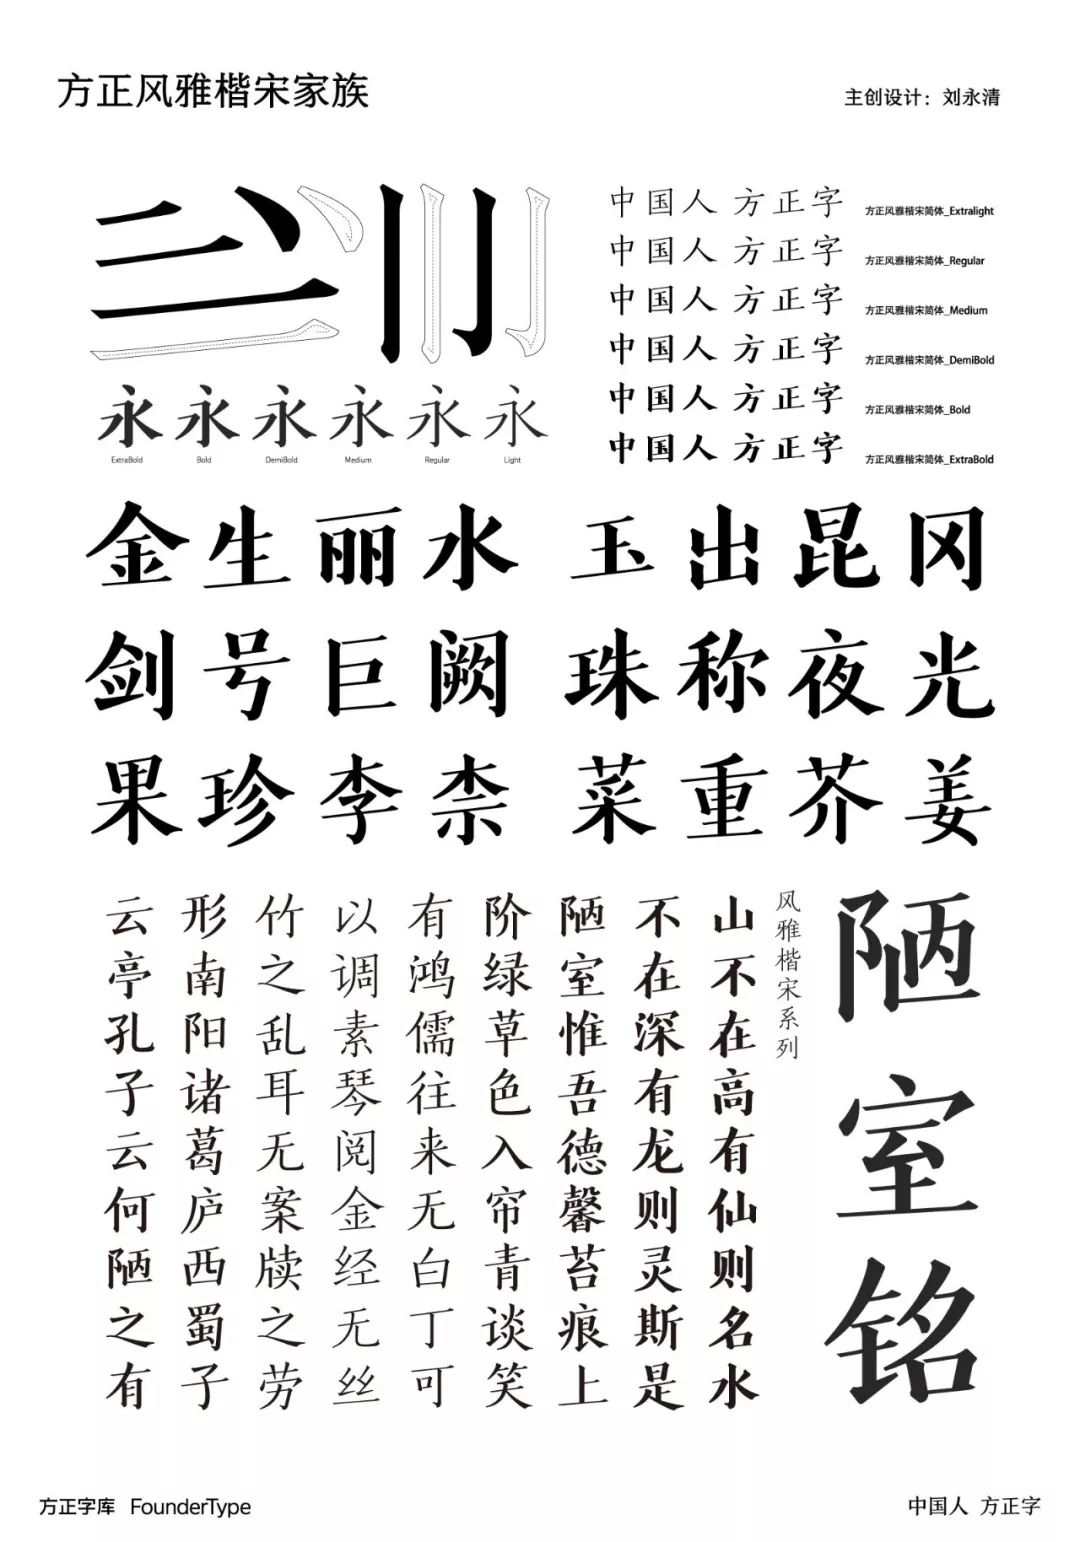 方正风雅楷宋家族
主创设计：刘永清
中国人 方正字 方正风雅楷宋简体_Extralight
中国人 方正字 方正风雅楷宋简体_Regular
中国人 方正字 方正风雅楷宋简体_Medium
中国人 方正字 方正风雅楷宋简体_DemiBold
中国人 方正字 方正风雅楷宋简体_Bold
中国人 方正字 方正风雅楷宋简体_ExtraBold
永永永永永永
ExtraBold Bold DemiBold Medium Regular Light
金生丽水 玉出昆冈
剑号巨阙 珠称夜光
果珍李柰 菜重芥姜
陋室铭
风雅楷宋系列
山不在高有仙则名水
不在深有龙则灵斯是
陋室惟吾德馨苔痕上
阶绿草色入帘青谈笑
有鸿儒往来无白丁可
以调素琴阅金经无丝
竹之乱耳无案牍之劳
形南阳诸葛庐西蜀子
云亭孔子云何陋之有
方正字库 FounderType
中国人 方正字